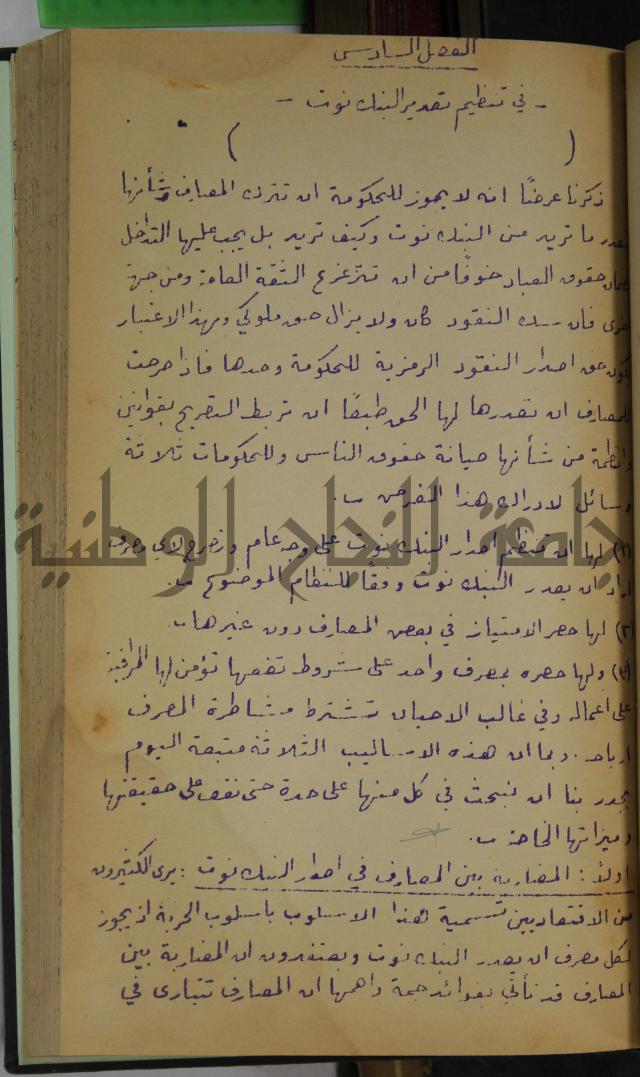 الفصل السادس
- في تنظيم تصدير البنك نوت -
( )
ذكرنا عرضًا انه لا يجوز للحكومة ان تترك المصارف وشأنها
تصدر ما تريد من البنك نوت وكيف تريد بل يجب عليها التداخل
لضمان حقوق العباد خوفًا من ان تتزعزع الثقة العامة ومن جهة
اخرى فان سك النقود كان ولا يزال حق ملوكي وبهذا الاعتبار
يكون حق اصدار النقود الرمزية للحكومة وحدها فاذا صرحت
للمصارف ان تصدرها لها الحق طبعًا ان تربط التصريح بقوانين
وانظمة من شأنها صيانة حقوق الناس وللحكومات ثلاثة
وسائل لادراك هذا الغرض .
(١) لها ان تنظم اصدار البنك نوت على وجه عام لاي مصرف
اراد ان يصدر البنك نوت وفقًا للنظام الموضوع .
(٢) لها حصر الامتياز في بعض المصارف دون غيرها .
(٣) ولها حصره بمصرف واحد على شروط تضعها تؤمن لها المراقبة
على اعماله وفي غالب الاحيان تشترط مشاطرة المصرف
ارباحه . وبما ان هذه الاساليب الثلاثة متبعة اليوم
يجدر بنا ان نبحث في كل منها على حدة حتى نقف على حقيقتها
وميزاتها الخاصة .
اولاً : المضاربة بين المصارف في اصدار البنك نوت : يرى الكثيرون
من الاقتصاديين تسمية هذا الاسلوب باسلوب الحرية اذ يجوز
لكل مصرف ان يصدر البنك نوت ويعتقدون ان المضاربة بين
المصارف قد تأتي بفوائد جمة واهمها ان المصارف تتبارى في
جامعة النجاح الوطنية